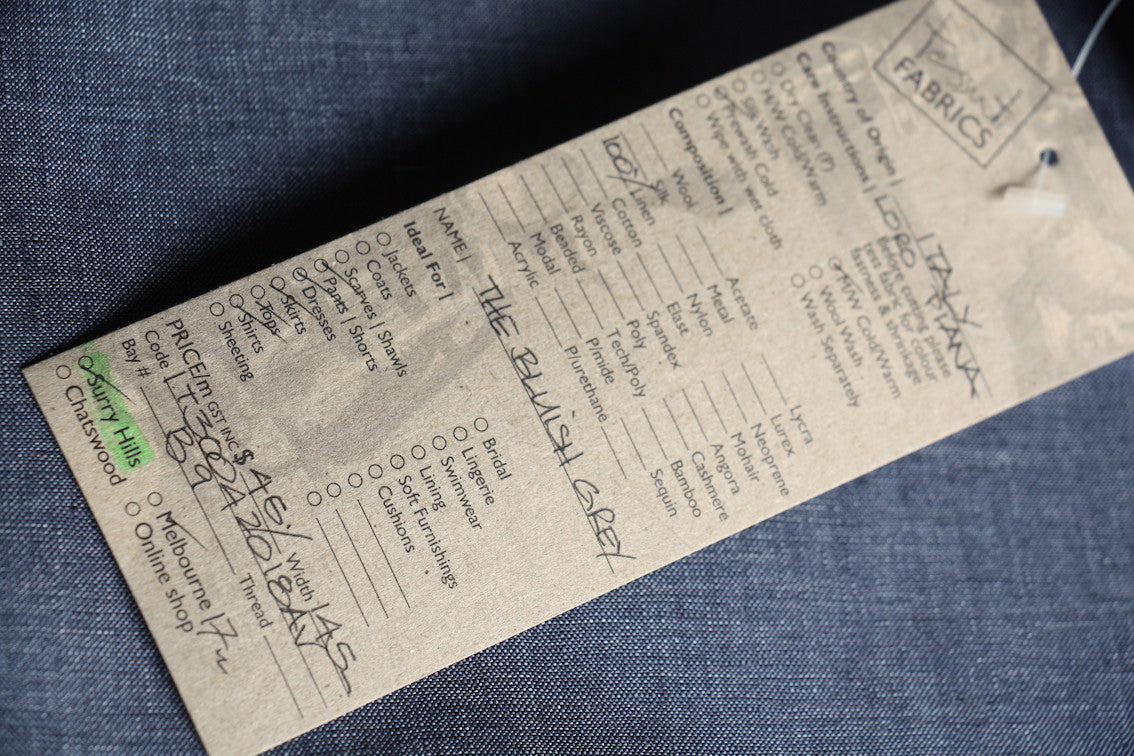 Tessuti
FABRICS
Country of Origin | ITALY
Care Instructions | LORO PIANA
Dry Clean (P)
M/W Cold/Warm
Silk Wash
Prewash Cold
Wipe with wet cloth
Before cutting please
test fabric for colour
fastness & shrinkage
M/W Cold/Warm
Wool Wash
Wash Separately
Composition |
Wool
Silk
100% Linen
Cotton
Viscose
Rayon
Beaded
Modal
Acrylic
Acetate
Metal
Nylon
Elast
Spandex
Poly
Tech/Poly
P/mide
P/urethane
Lycra
Lurex
Neoprene
Mohair
Angora
Cashmere
Bamboo
Sequin
NAME | THE BLUISH GREY
Ideal For |
Jackets
Coats
Scarves | Shawls
Pants | Shorts
Dresses
Skirts
Tops
Shirts
Sheeting
Bridal
Lingerie
Swimwear
Lining
Soft Furnishings
Cushions
PRICE/m GST INC $ 45/ Width 145
Code |
Bay # B9 Thread
Surry Hills
Chatswood
Melbourne
Online shop